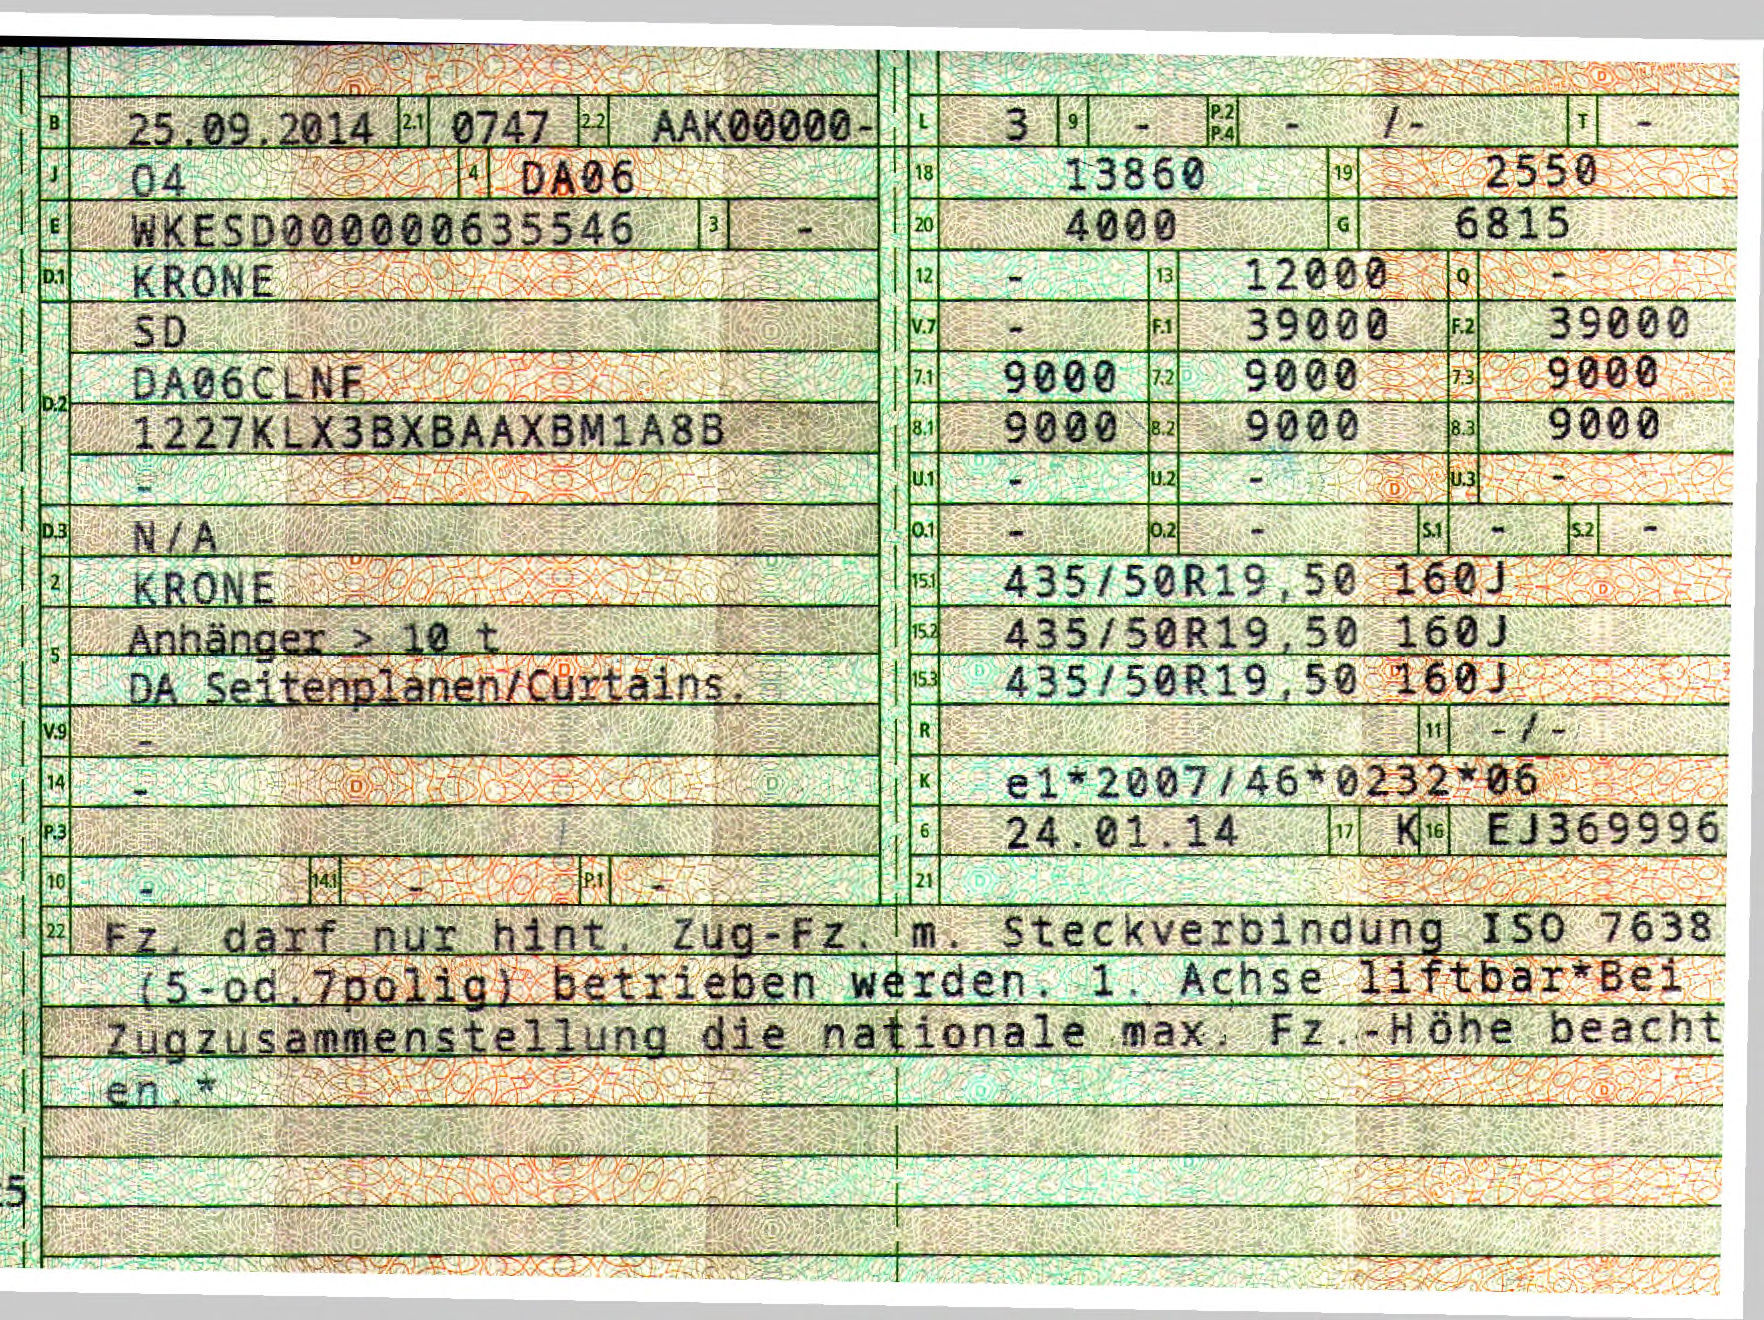 B 25.09.2014 2.1 0747 2.2 AAK00000-
J 04 4 DA06
E WKESD000000635546 3 -
D.1 KRONE
SD
D.2 DA06CLNF
1227KLX3BXBAAXBM1A8B
-
D.3 N/A
2 KRONE
5 Anhänger > 10 t
DA Seitenplanen/Curtains.
V.9 -
14 -
P.3 /
10 - 14.1 - P.1 -
L 3 9 - P.2 P.4 - /- T -
18 13860 19 2550
20 4000 G 6815
12 - 13 12000 Q -
V.7 - F.1 39000 F.2 39000
7.1 9000 7.2 9000 7.3 9000
8.1 9000 8.2 9000 8.3 9000
U.1 - U.2 - U.3 -
O.1 - O.2 - S.1 - S.2 -
15.1 435/50R19,50 160J
15.2 435/50R19,50 160J
15.3 435/50R19,50 160J
R 11 -/-
K e1*2007/46*0232*06
6 24.01.14 17 K 16 EJ369996
21
22 Fz. darf nur hint. Zug-Fz. m. Steckverbindung ISO 7638
(5-od.7polig) betrieben werden. 1. Achse liftbar*Bei
Zugzusammenstellung die nationale max. Fz.-Höhe beacht
en.*
5